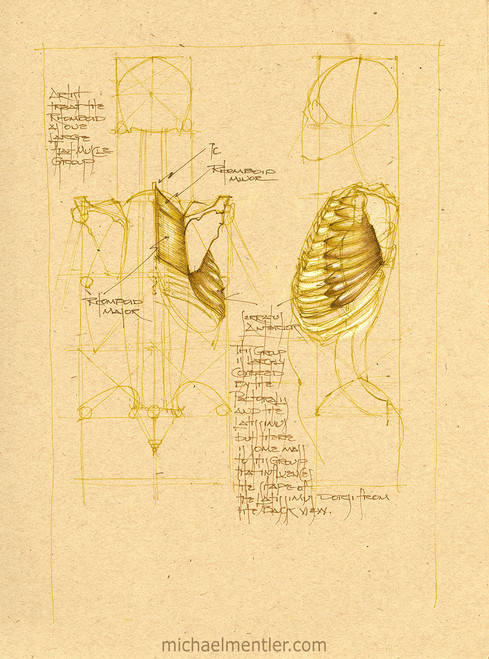 ARTIST
TREAT THE
RHOMBOID
AS ONE
LARGE
FLAT MUSCLE
GROUP
7C
RHOMBOID
MINOR
RHOMBOID
MAJOR
SERRATUS
ANTERIOR
THIS GROUP
IS LARGELY
COVERED
BY THE
PECTORALIS
AND THE
LATISSIMUS
BUT THERE
IS SOME MASS
TO THIS GROUP
THAT INFLUENCES
THE SHAPE OF
THE LATISSIMUS DORSI FROM
THE BACK VIEW.
michaelmentler.com